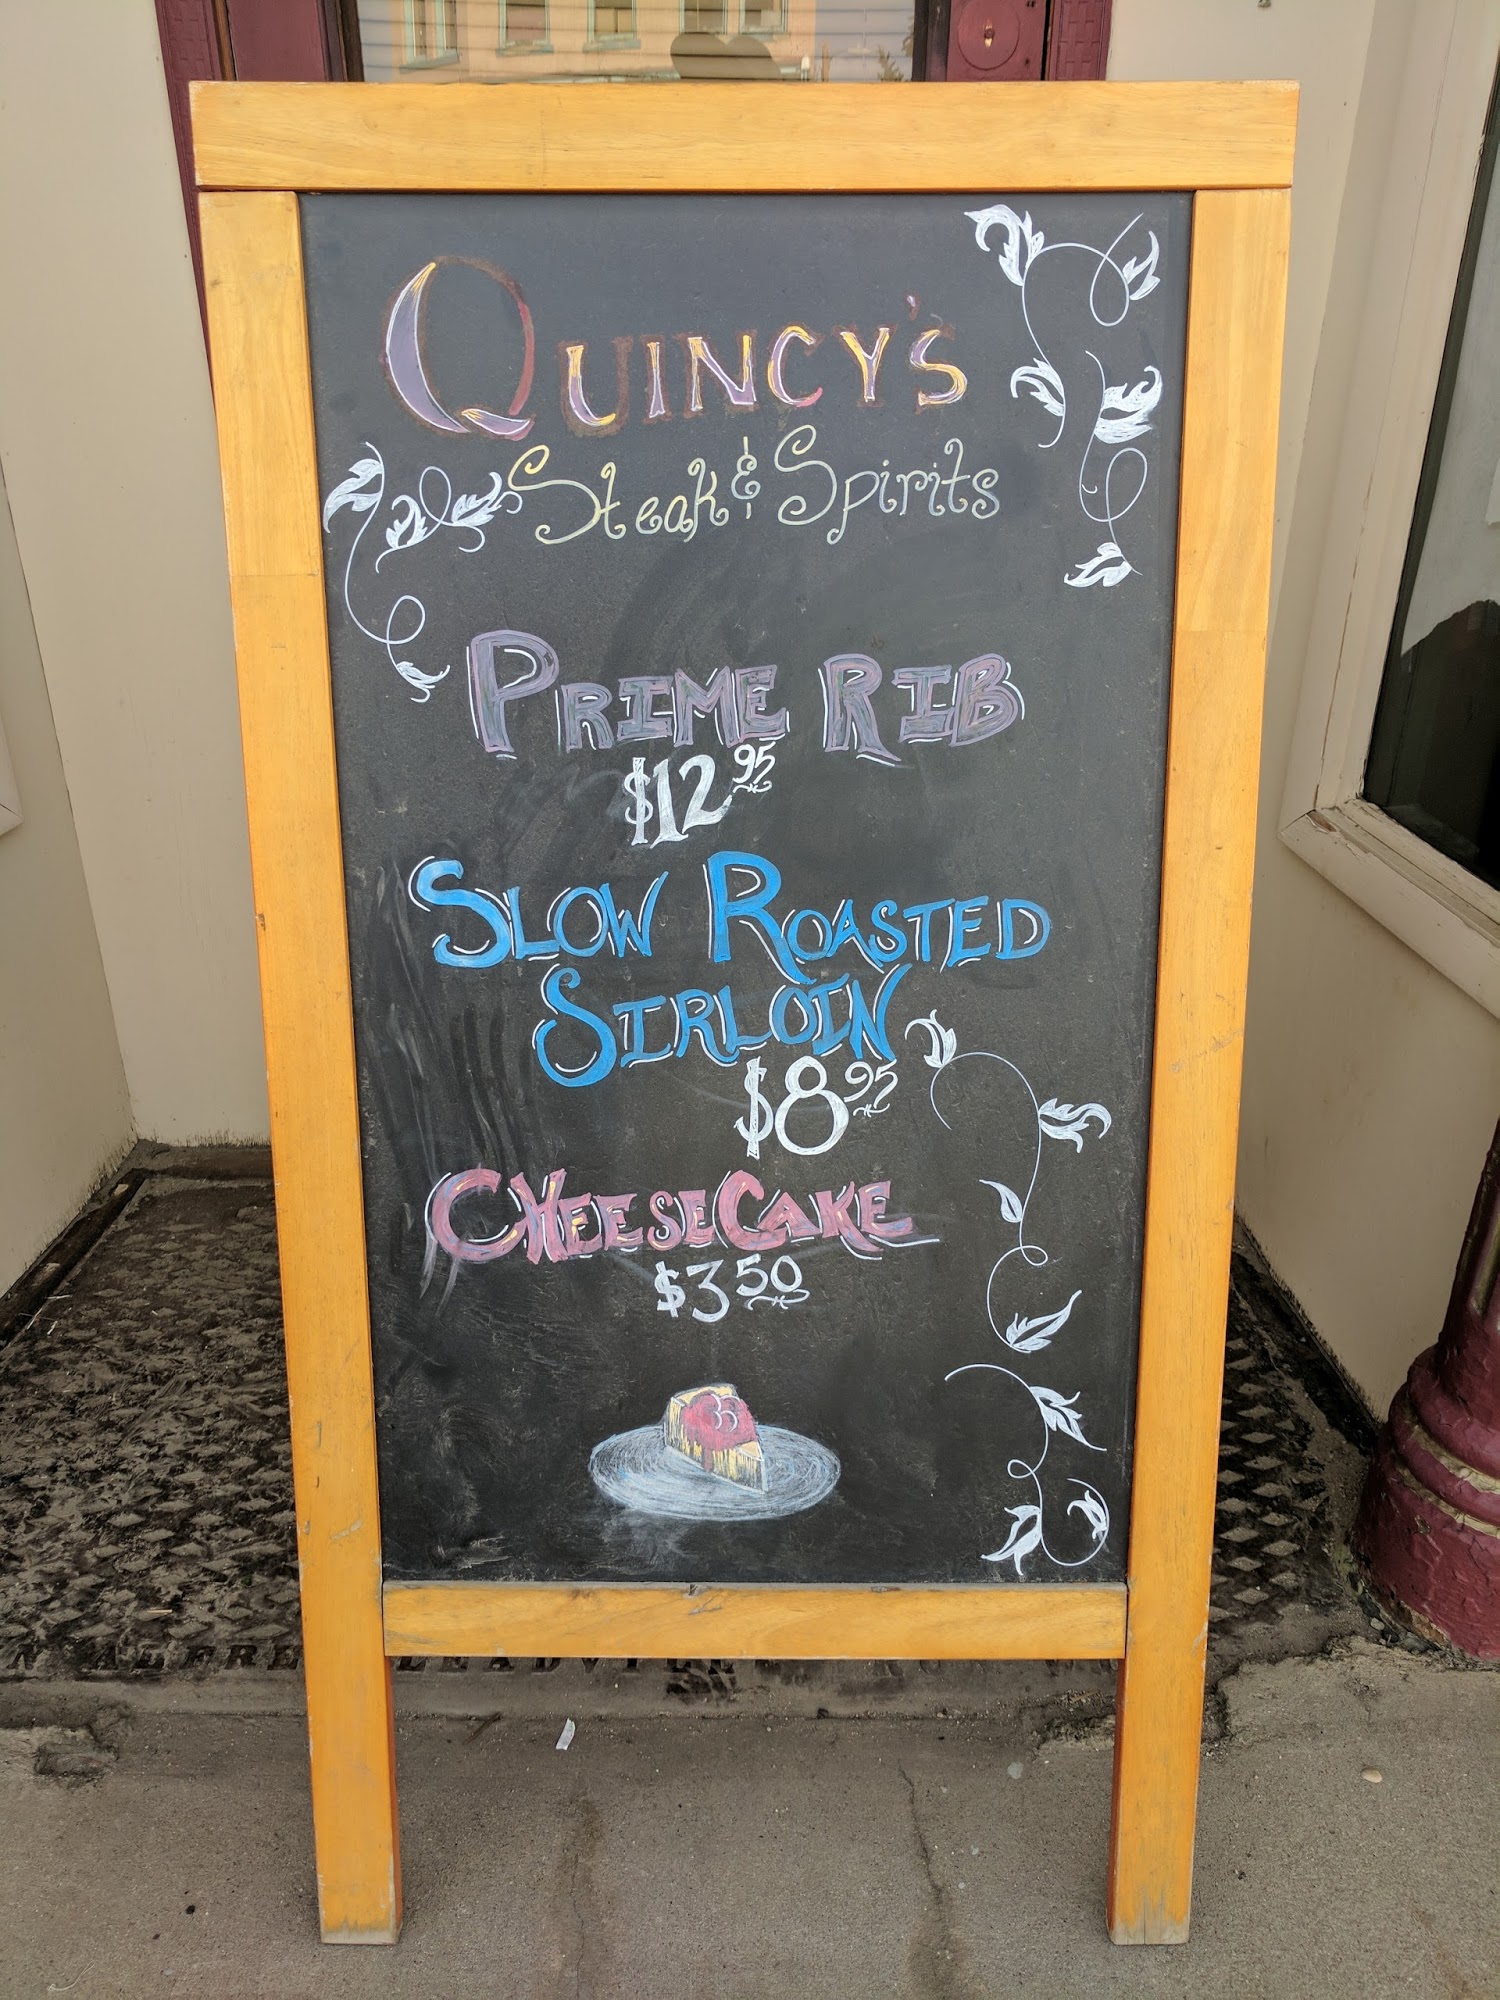 QUINCY'S
Steak & Spirits
PRIME RIB
$12.95
SLOW ROASTED
SIRLOIN
$8.95
CHEESECAKE
$3.50
LEADVILLE